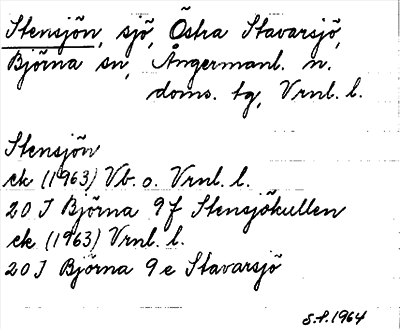 Stensjön, sjö, Östra Stavarsjö,
Björna sn, Ångermanl. n.
doms. tg, Vrnl. l.
Stensjön
ek (1963) Vb. o. Vrnl. l.
20 J Björna 9f Stensjökullen
ek (1963) Vrnl. l.
20 J Björna 9e Stavarsjö
S.P. 1964